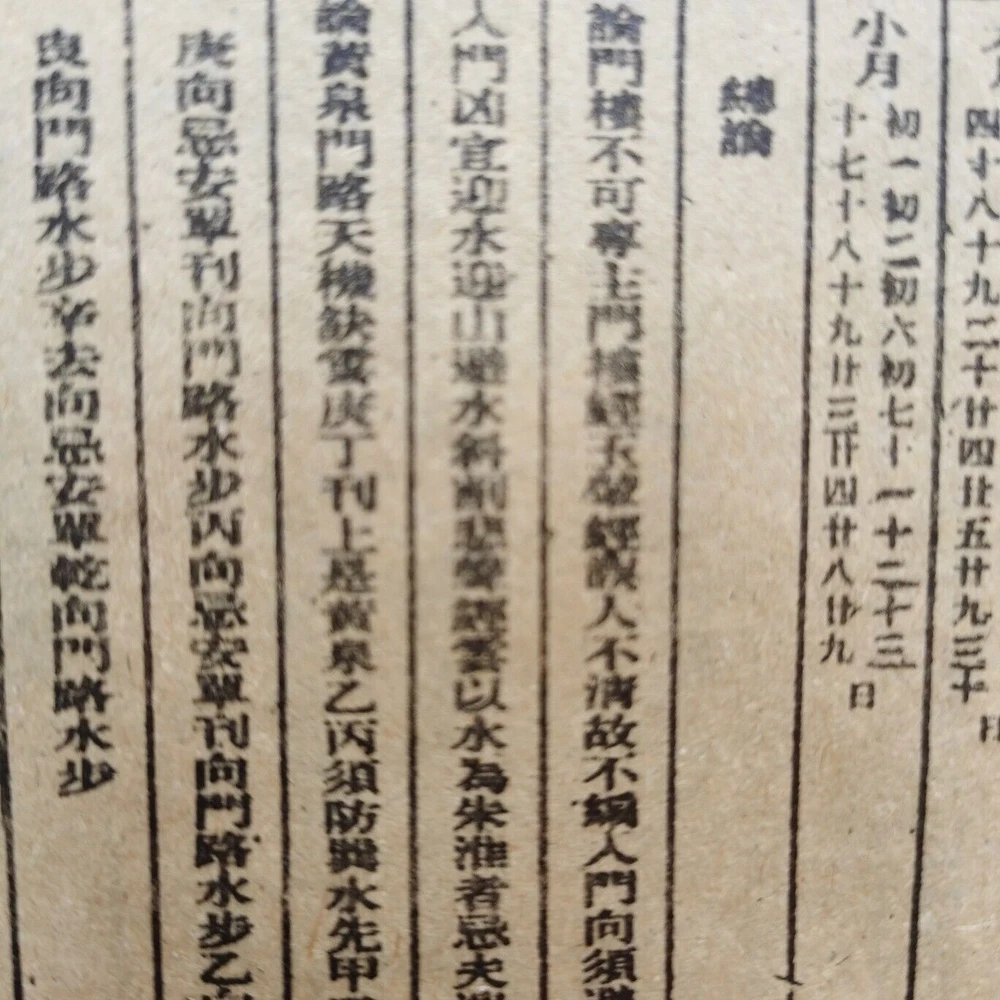 四十八十九二十廿四廿五廿九三十 日
小月 初一初二初六初七十一十二十三
十七十八十九廿三廿四廿八廿九 日
總論
論門樓不可專主門樓經玉輦經誤人不清故不編入門向須避
人門凶宜迎水迎山避水斜割悲聲經雲以水為朱准者忌夫
論黃泉門路天機訣雲庚丁刊上是黃泉乙丙須防巽水先甲
庚向忌安單刊向門路水步丙向忌安單刊向門路水步乙向
良向門路水步辛去向忌安單乾向門路水步